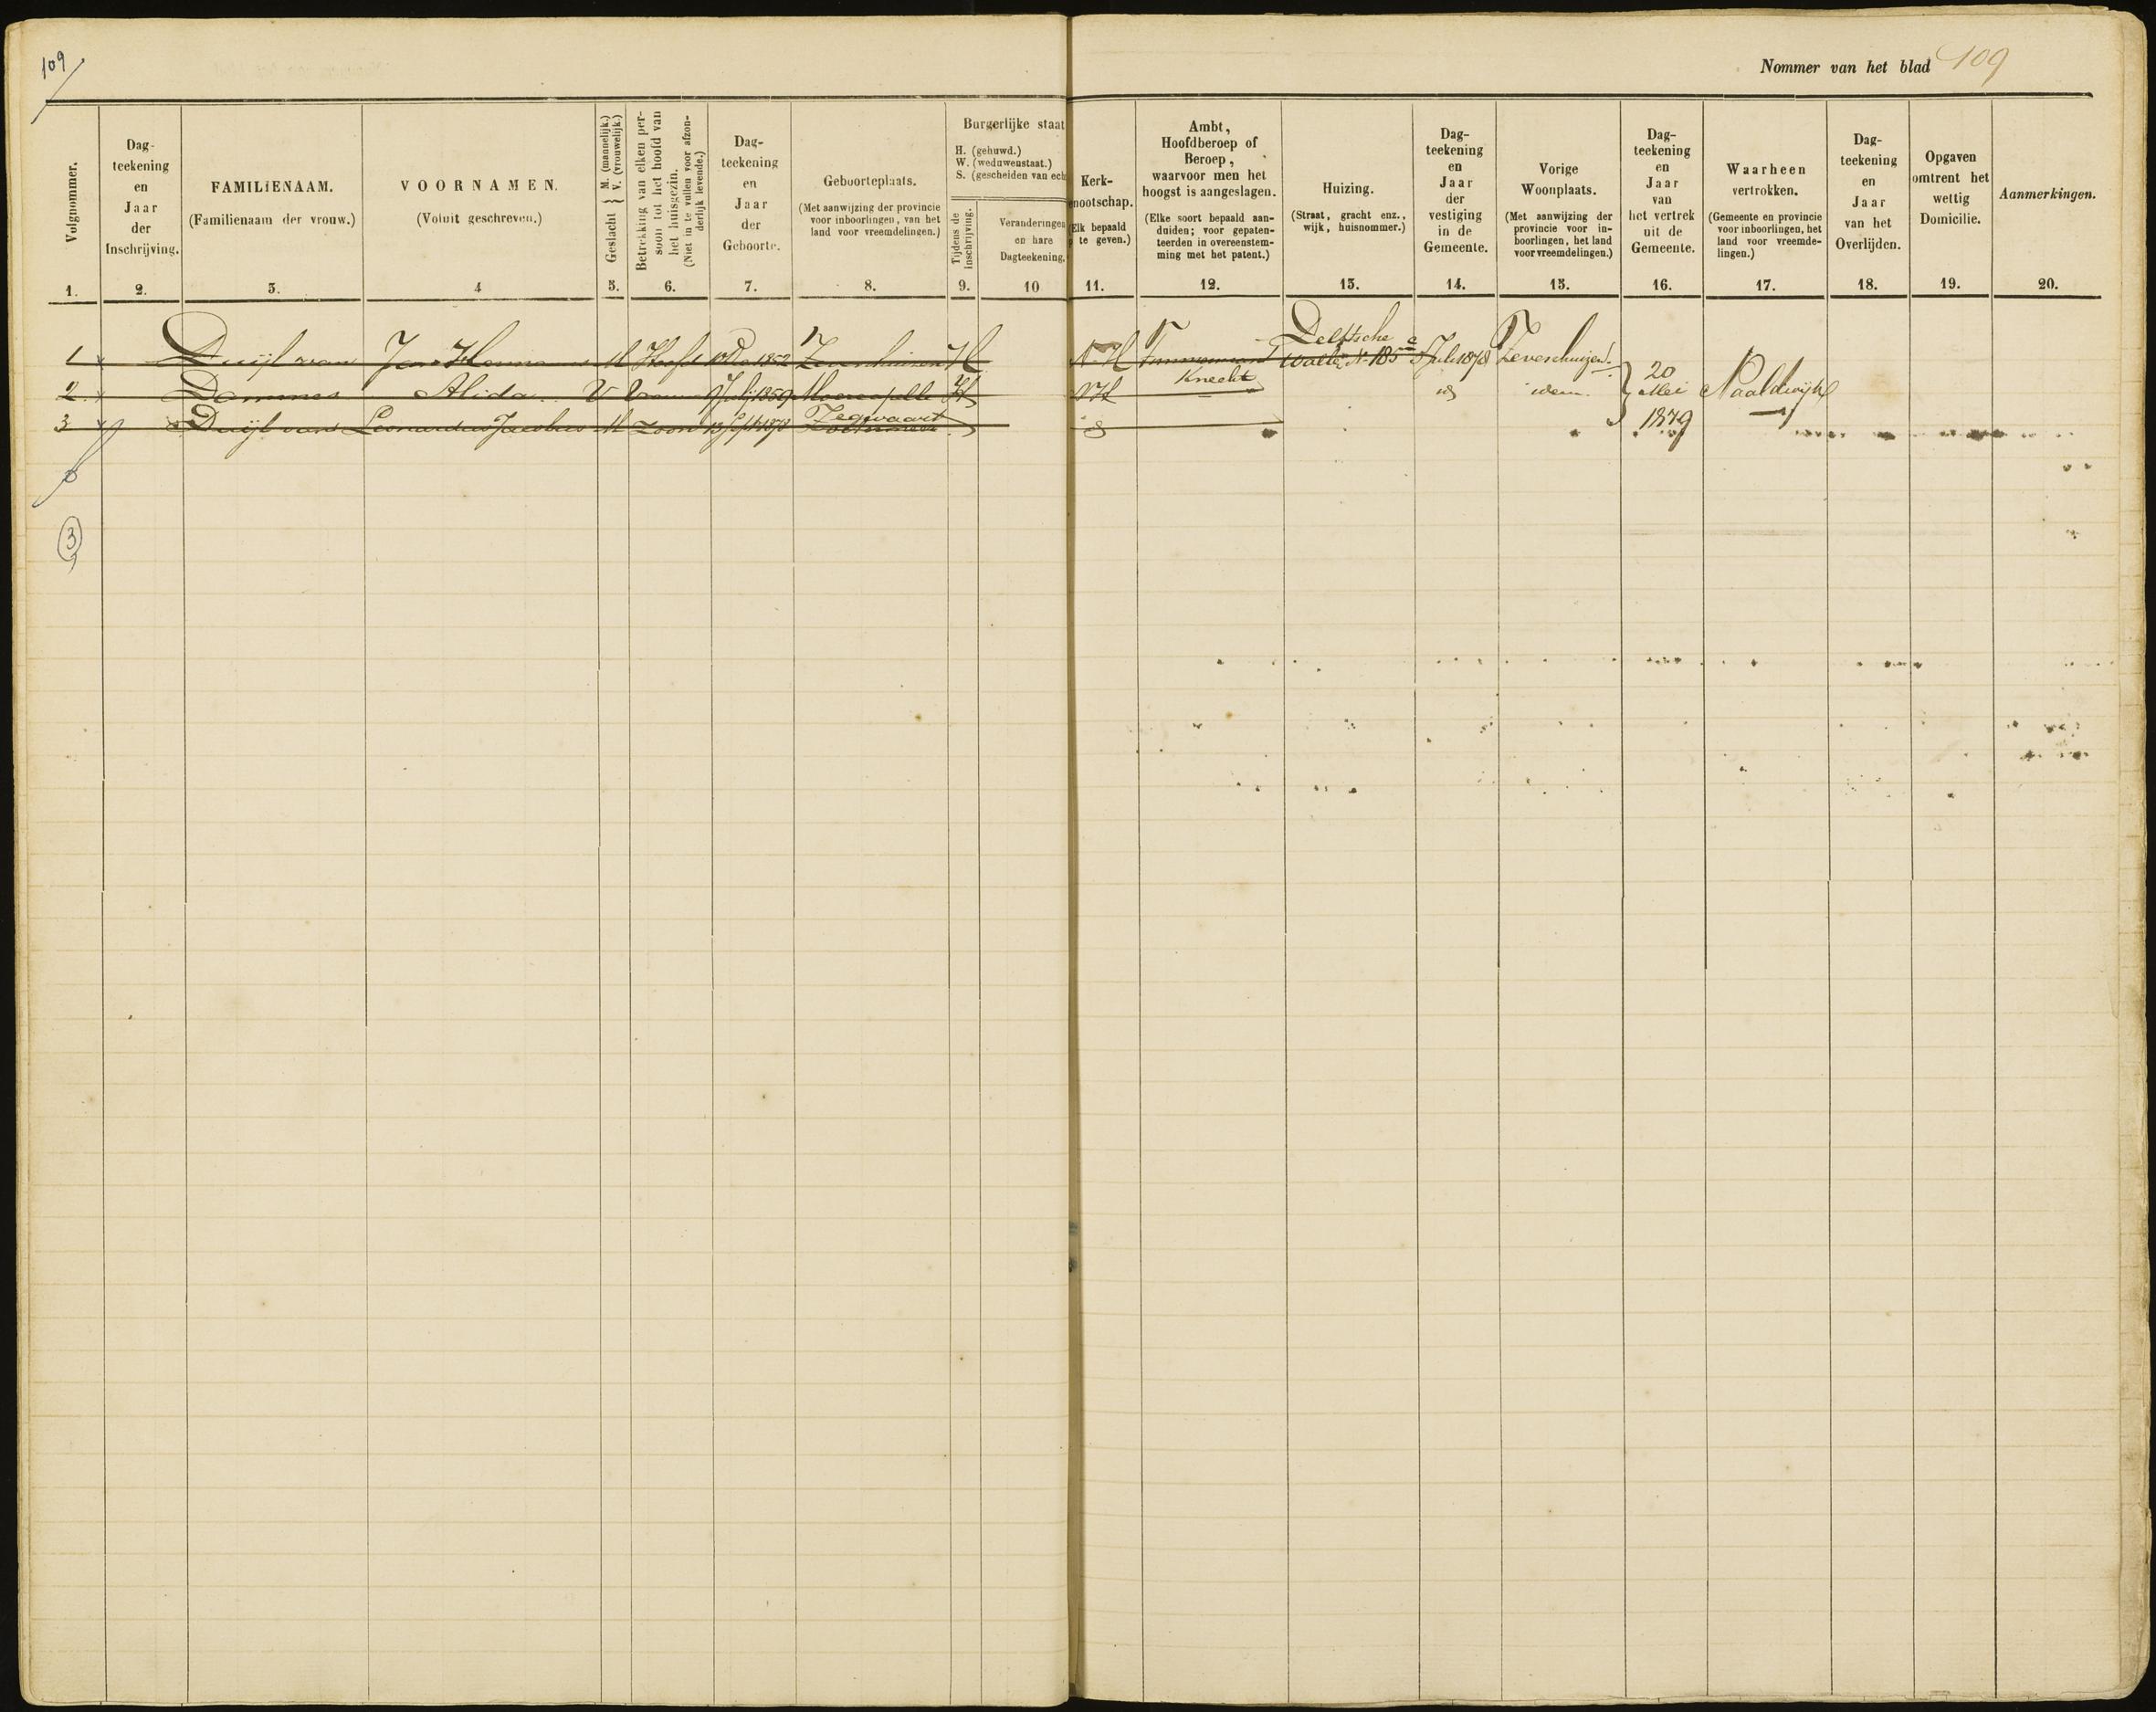 109
Nommer van het blad 109
Volgnommer.
Dag-
teekening
en
Jaar
der
Inschrijving.
FAMILIENAAM.
(Familienaam der vrouw.)
VOORNAMEN.
(Voluit geschreven.)
Geslacht } M. (mannelijk.)
V. (vrouwelijk.)
Betrekking van elken per-
soon tot het hoofd van
het huisgezin.
(Niet in te vullen voor afzon-
derlijk levende.)
Dag-
teekening
en
Jaar
der
Geboorte.
Geboorteplaats.
(Met aanwijzing der provincie
voor inboorlingen, van het
land voor vreemdelingen.)
Burgerlijke staat
H. (gehuwd.)
W. (weduwenstaat.)
S. (gescheiden van ech
Tijdens de
inschrijving.
Veranderingen
en hare
Dagteekening.
Kerk-
nootschap.
Elk bepaald
te geven.)
Ambt,
Hoofdberoep of
Beroep,
waarvoor men het
hoogst is aangeslagen.
(Elke soort bepaald aan-
duiden; voor gepaten-
teerden in overeenstem-
ming met het patent.)
Huizing.
(Straat, gracht enz.,
wijk, huisnommer.)
Dag-
teekening
en
Jaar
der
vestiging
in de
Gemeente.
Vorige
Woonplaats.
(Met aanwijzing der
provincie voor in-
boorlingen, het land
voor vreemdelingen.)
Dag-
teekening
en
Jaar
van
het vertrek
uit de
Gemeente.
Waarheen
vertrokken.
(Gemeente en provincie
voor inboorlingen, het
land voor vreemde-
lingen.)
Dag-
teekening
en
Jaar
van het
Overlijden.
Opgaven
omtrent het
wettig
Domicilie.
Aanmerkingen.
1. 2. 3. 4 5. 6. 7. 8. 9. 10 11. 12. 13. 14. 15. 16. 17. 18. 19. 20.
Delftsche
1 Duijl van Jan Hermanus M Hoofd 1852 Zevenhuizen H N H Timmermans Wallen No 185 Juli 1878 Zevenhuizen
Knecht
2 Dammes Alida V Vrouw Julij 1859 Moercapelle H NH id idem. 20 Mei 1879 Naaldwijk
Zegwaart
3 Duijl van Leonardus Jacobus M Zoon 13 Sept 1878 Zoetermeer
3